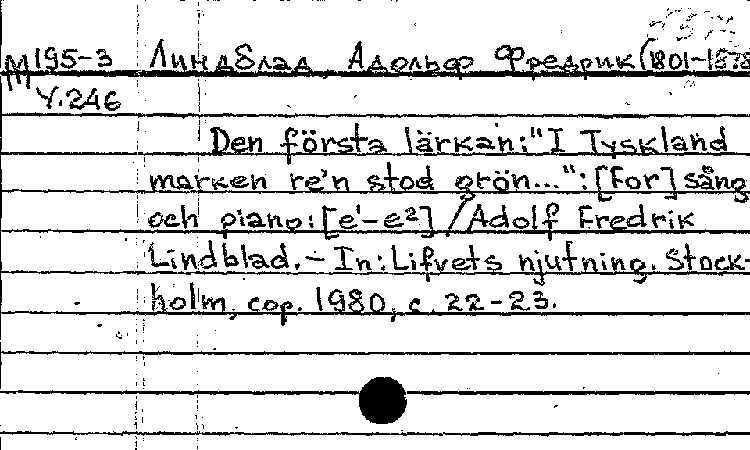 М195-3 Линдблад, Адольф Фредрик (1801-1878
У.246
Den första lärkan: "I Tyskland
marken re'n stod grön...": [For] sång
och piano: [e¹-e²] / Adolf Fredrik
Lindblad. - In: Lifvets njutning. Stock-
holm, cop. 1980, c. 22-23.